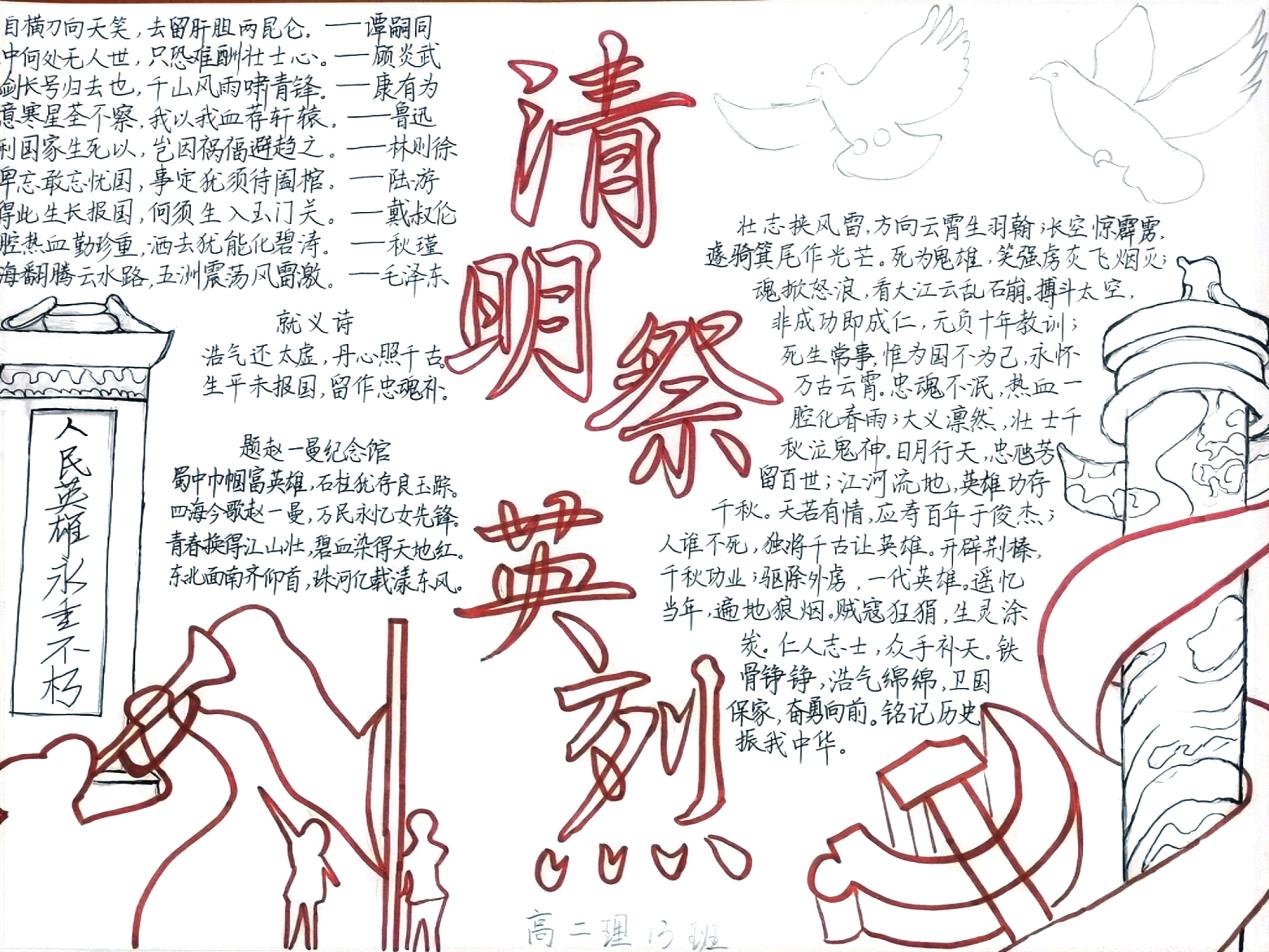 自横刀向天笑，去留肝胆两昆仑。——谭嗣同
中何处无人世，只恐难酬壮士心。——顾炎武
剑长号归去也，千山风雨啸青锋。——康有为
意寒星荃不察，我以我血荐轩辕。——鲁迅
利国家生死以，岂因祸福避趋之。——林则徐
卑忘敢忘忧国，事定犹须待阖棺。——陆游
得此生长报国，何须生入玉门关。——戴叔伦
腔热血勤珍重，洒去犹能化碧涛。——秋瑾
海翻腾云水路，五洲震荡风雷激。——毛泽东
就义诗
浩气还太虚，丹心照千古。
生平未报国，留作忠魂补。
题赵一曼纪念馆
蜀中巾帼富英雄，石柱犹存良玉踪。
四海今歌赵一曼，万民永忆女先锋。
青春换得江山壮，碧血染得天地红。
东北西南齐仰首，珠河亿载漾东风。
人民英雄永垂不朽
清明祭英烈
壮志挟风雷，方向云霄生羽翰；长空惊霹雳，
遽骑箕尾作光芒。死为鬼雄，笑强虏灰飞烟灭；
魂掀怒浪，看大江云乱石崩。搏斗太空，
非成功即成仁，元负十年教训；
死生常事，惟为国不为己，永怀
万古云霄。忠魂不泯，热血一
腔化春雨；大义凛然，壮士千
秋泣鬼神。日月行天，忠魂芳
留百世；江河流地，英雄功存
千秋。天若有情，应寿百年于俊杰；
人谁不死，独将千古让英雄。开辟荆榛，
千秋功业；驱除外虏，一代英雄。遥忆
当年，遍地狼烟。贼寇狂狷，生灵涂
炭。仁人志士，众手补天。铁
骨铮铮，浩气绵绵，卫国
保家，奋勇向前。铭记历史
振我中华。
高二理13班